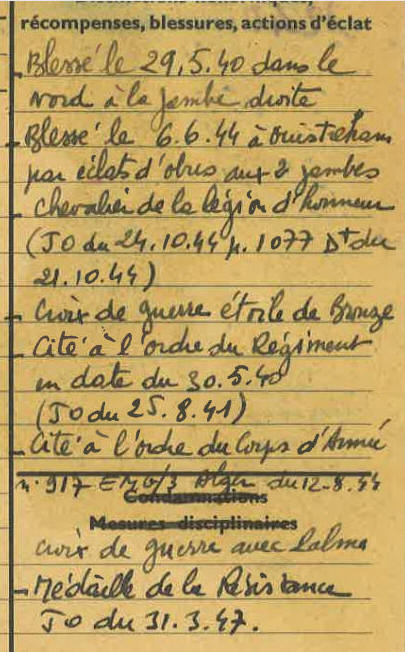 récompenses, blessures, actions d'éclat
- Blessé le 29.5.40 dans le
Nord à la jambe droite
- Blessé le 6.6.44 à Ouistreham
par éclats d'obus aux 2 jambes
- Chevalier de la légion d'honneur
(JO du 24.10.44 p. 1077 Dt du
21.10.44)
- Croix de guerre étoile de Bronze
- Cité à l'ordre du Régiment
en date du 30.5.40
(JO du 25.8.41)
- Cité à l'ordre du Corps d'Armée
n° 917 EMG/3 Alger du 12-8-44
Condamnations
Mesures disciplinaires
Croix de guerre avec Palme
- Médaille de la Résistance
JO du 31.3.47.